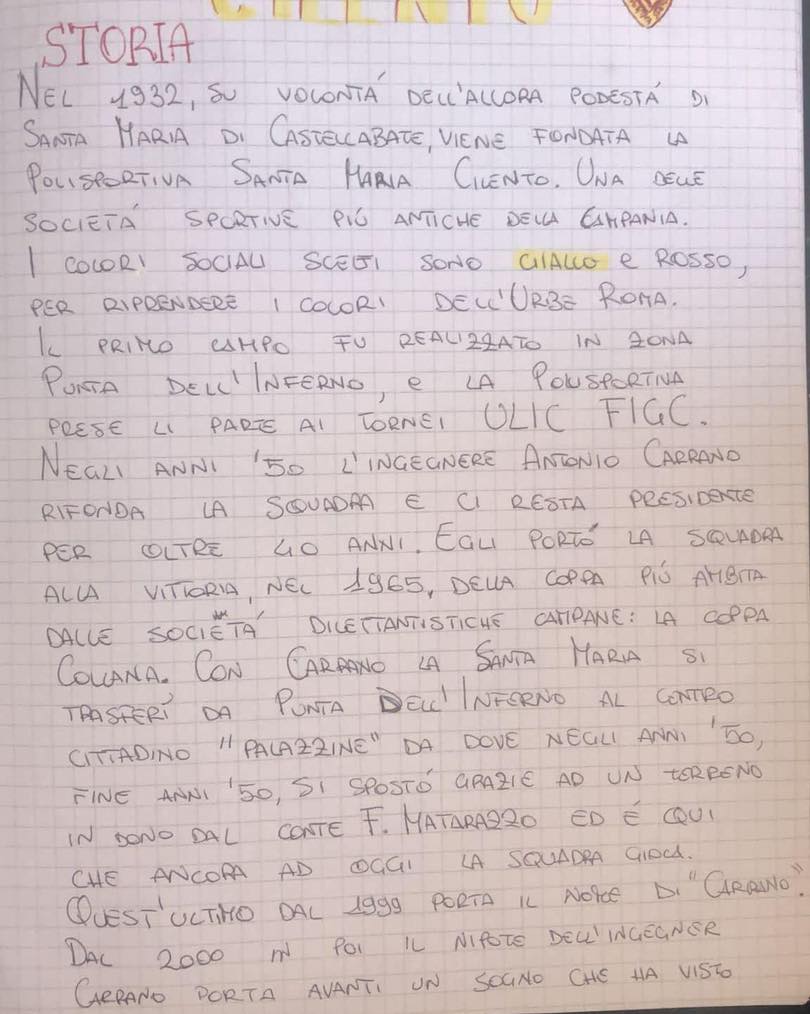 CILENTO
STORIA
NEL 1932, SU VOLONTÁ DELL'ALLORA PODESTÁ DI
SANTA MARIA DI CASTELLABATE, VIENE FONDATA LA
POLISPORTIVA SANTA MARIA CILENTO. UNA DELLE
SOCIETÁ SPORTIVE PIÚ ANTICHE DELLA CAMPANIA.
I COLORI SOCIALI SCELTI SONO GIALLO e ROSSO,
PER RIPRENDERE I COLORI DELL'URBE ROMA.
IL PRIMO CAMPO FU REALIZZATO IN ZONA
PUNTA DELL'INFERNO, e LA POLISPORTIVA
PRESE LI PARTE AI TORNEI ULIC FIGC.
NEGLI ANNI '50 L'INGEGNERE ANTONIO CARRANO
RIFONDA LA SQUADRA E CI RESTA PRESIDENTE
PER OLTRE 40 ANNI. EGLI PORTÓ LA SQUADRA
ALLA VITTORIA, NEL 1965, DELLA COPPA PIÚ AMBITA
DALLE SOCIETÁ DILETTANTISTICHE CAMPANE: LA COPPA
COLLANA. CON CARRANO LA SANTA MARIA SI
TRASFERÍ DA PUNTA DELL'INFERNO AL CENTRO
CITTADINO "PALAZZINE" DA DOVE NEGLI ANNI '50,
FINE ANNI '50, SI SPOSTÓ GRAZIE AD UN TERRENO
IN DONO DAL CONTE F. MATARAZZO ED É QUI
CHE ANCORA AD OGGI LA SQUADRA GIOCA.
QUEST'ULTIMO DAL 1999 PORTA IL NOME. DI "CARRANO".
DAL 2000 IN POI IL NIPOTE DELL'INGEGNER
CARRANO PORTA AVANTI UN SOGNO CHE HA VISTO